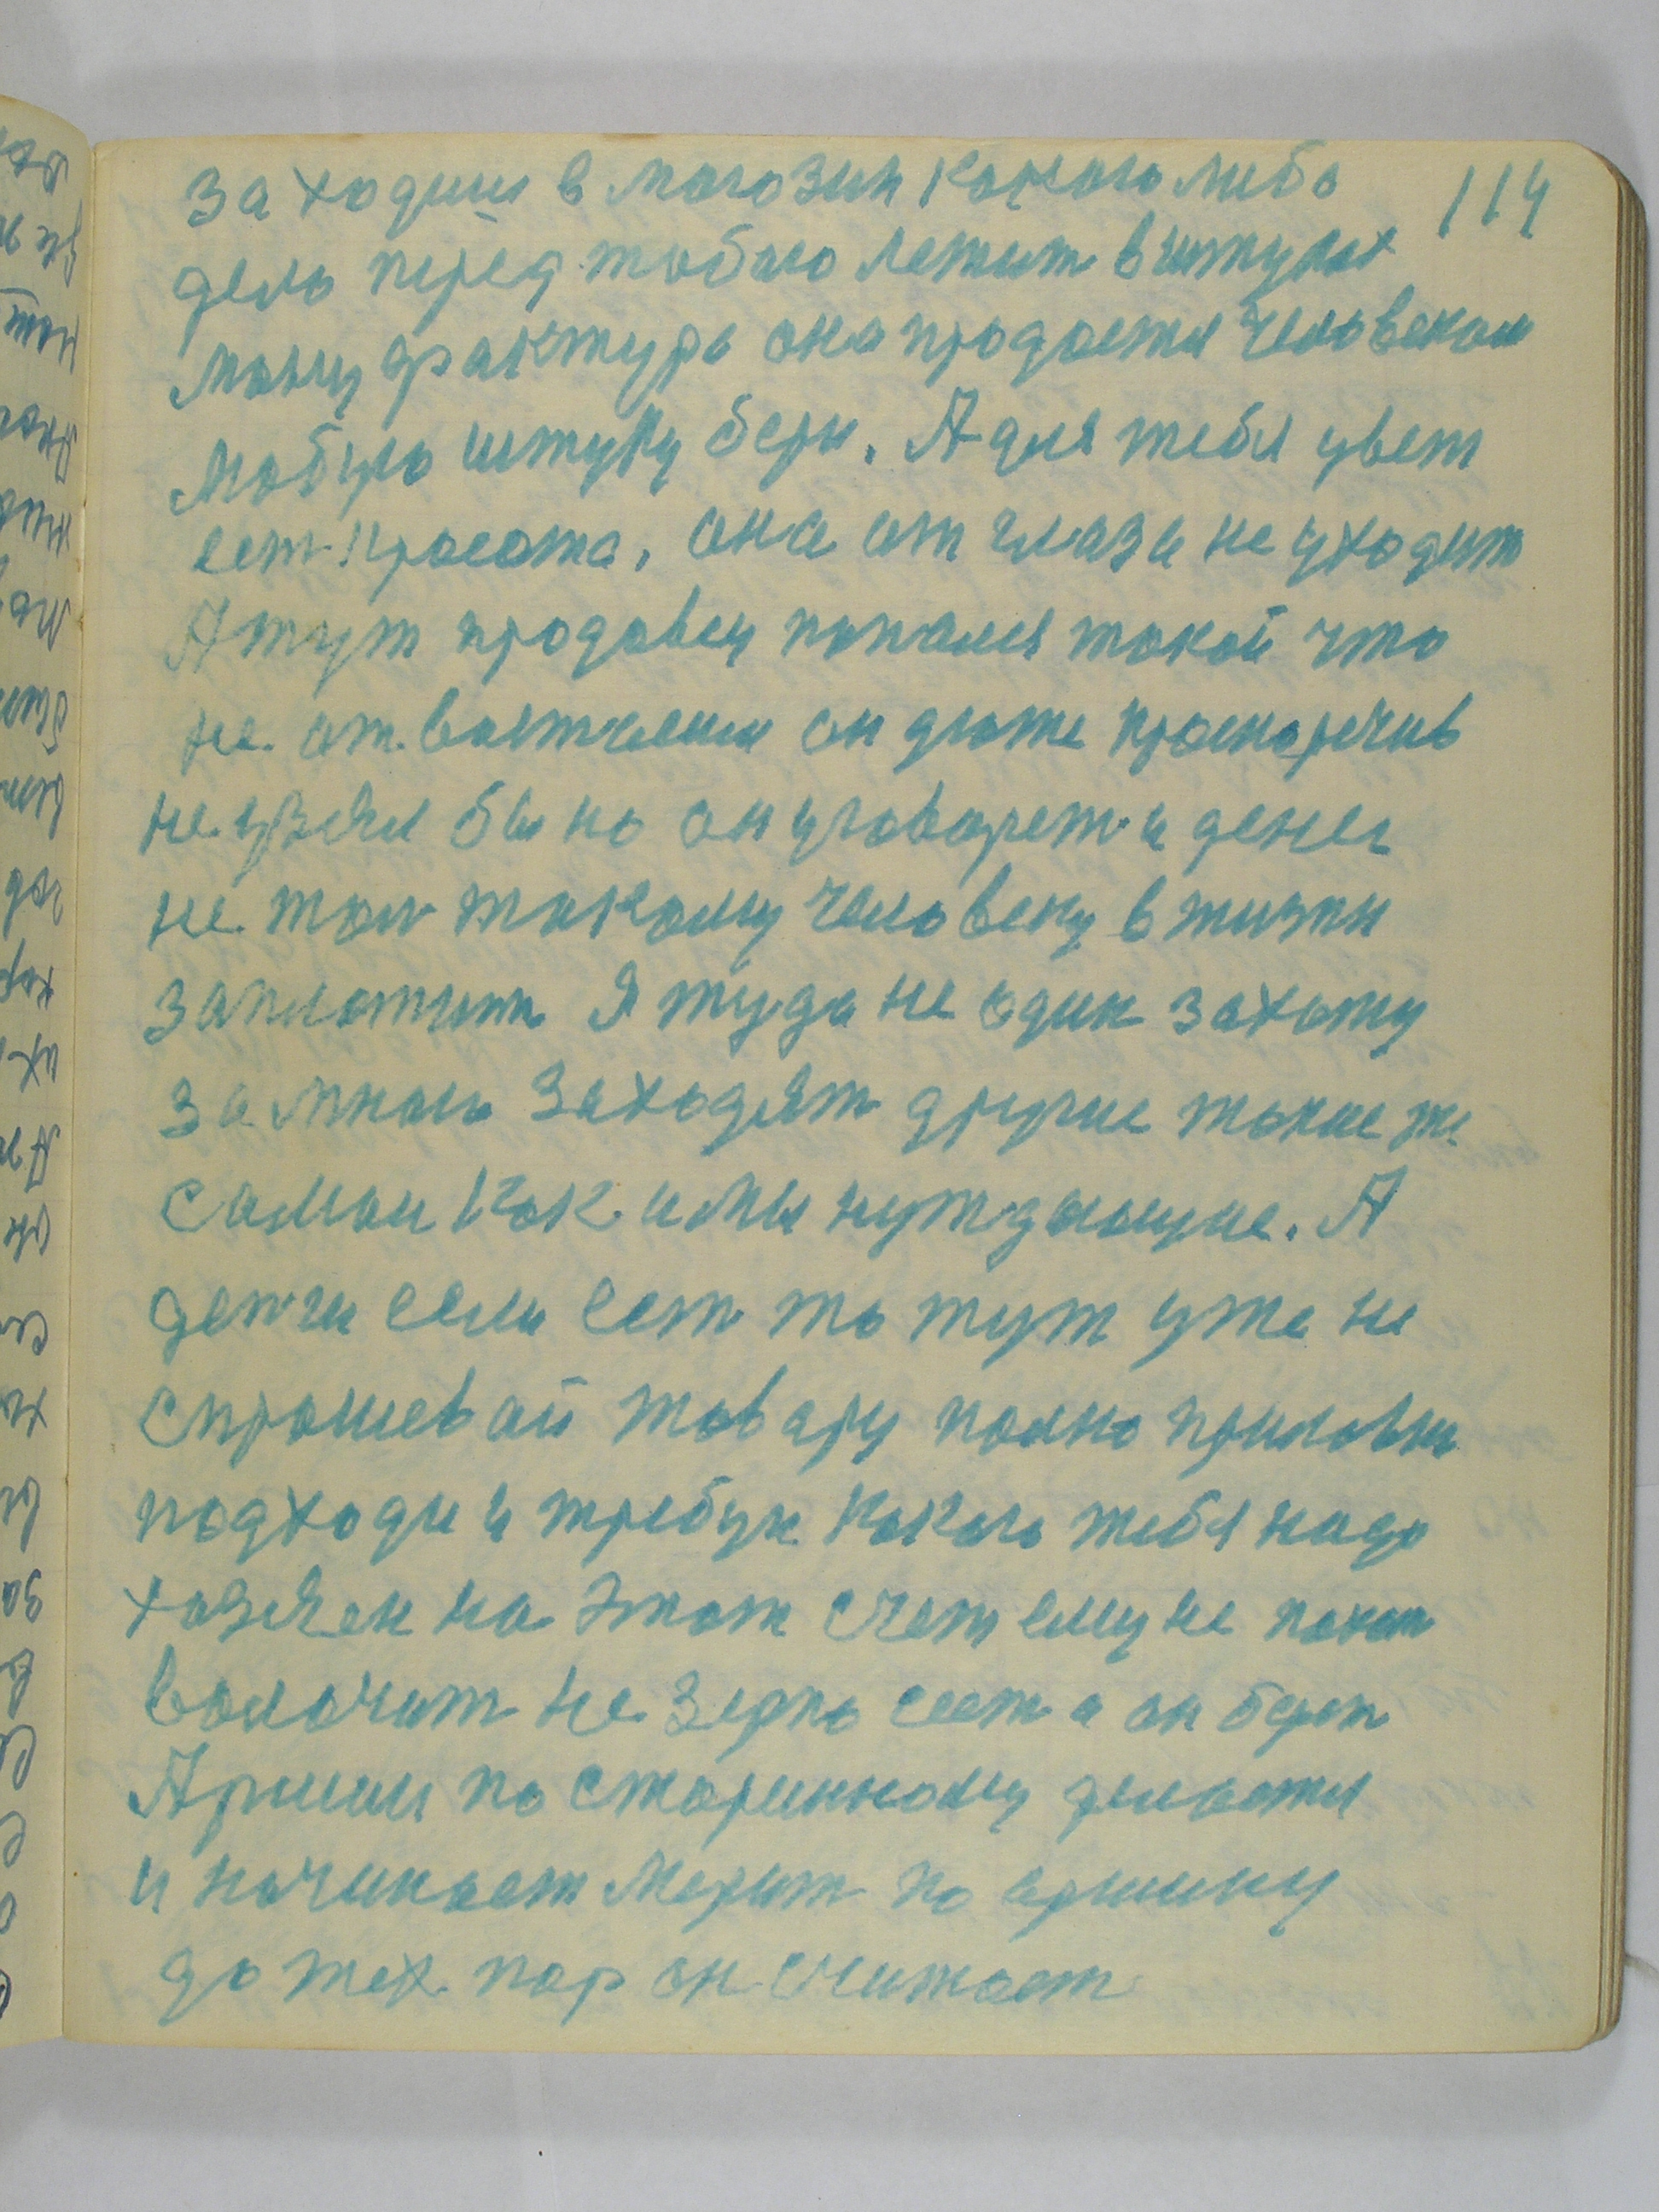 114
Заходиш в магозин какого либо
дела перед тобою лежит в штуках
мануфактура она продается человеком
любую штуку бери. А для тебя цвет
ест красота, она от глаза не уходит
А тут продавец попался такой что
не отвястаеш он дюже красноречив
не узял бы но он уговорет и денег
не жал такому человеку в жизни
заплотить Я туда не один захожу
за мною заходят другие такие же
самаи как и мы нуждающие. А
денги если ест то тут уже не
спрошевай товару полно прилавки
подходи и требуи какого тебя надо
хозяен на этот счет ему не пахат
волочит не зерно сеет а он берет
Аршин по старинному делается
и начинает мерит по аршину
до тех пор он считает